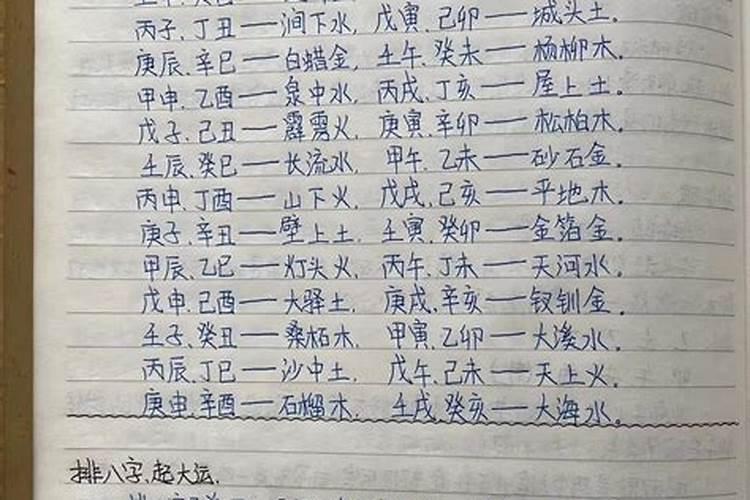 丙子、丁丑——涧下水, 戊寅、己卯——城头土.
庚辰、辛巳——白蜡金, 壬午、癸未——杨柳木.
甲申、乙酉——泉中水, 丙戌、丁亥——屋上土.
戊子、己丑——霹雳火, 庚寅、辛卯——松柏木.
壬辰、癸巳——长流水, 甲午、乙未——砂石金.
丙申、丁酉——山下火, 戊戌、己亥——平地木.
庚子、辛丑——壁上土, 壬寅、癸卯——金箔金.
甲辰、乙巳——灯头火, 丙午、丁未——天河水.
戊申、己酉——大驿土, 庚戌、辛亥——钗钏金.
壬子、癸丑——桑柘木, 甲寅、乙卯——大溪水.
丙辰、丁巳——沙中土, 戊午、己未——天上火.
庚申、辛酉——石榴木, 壬戌、癸亥——大海水.
排八字、起大运.